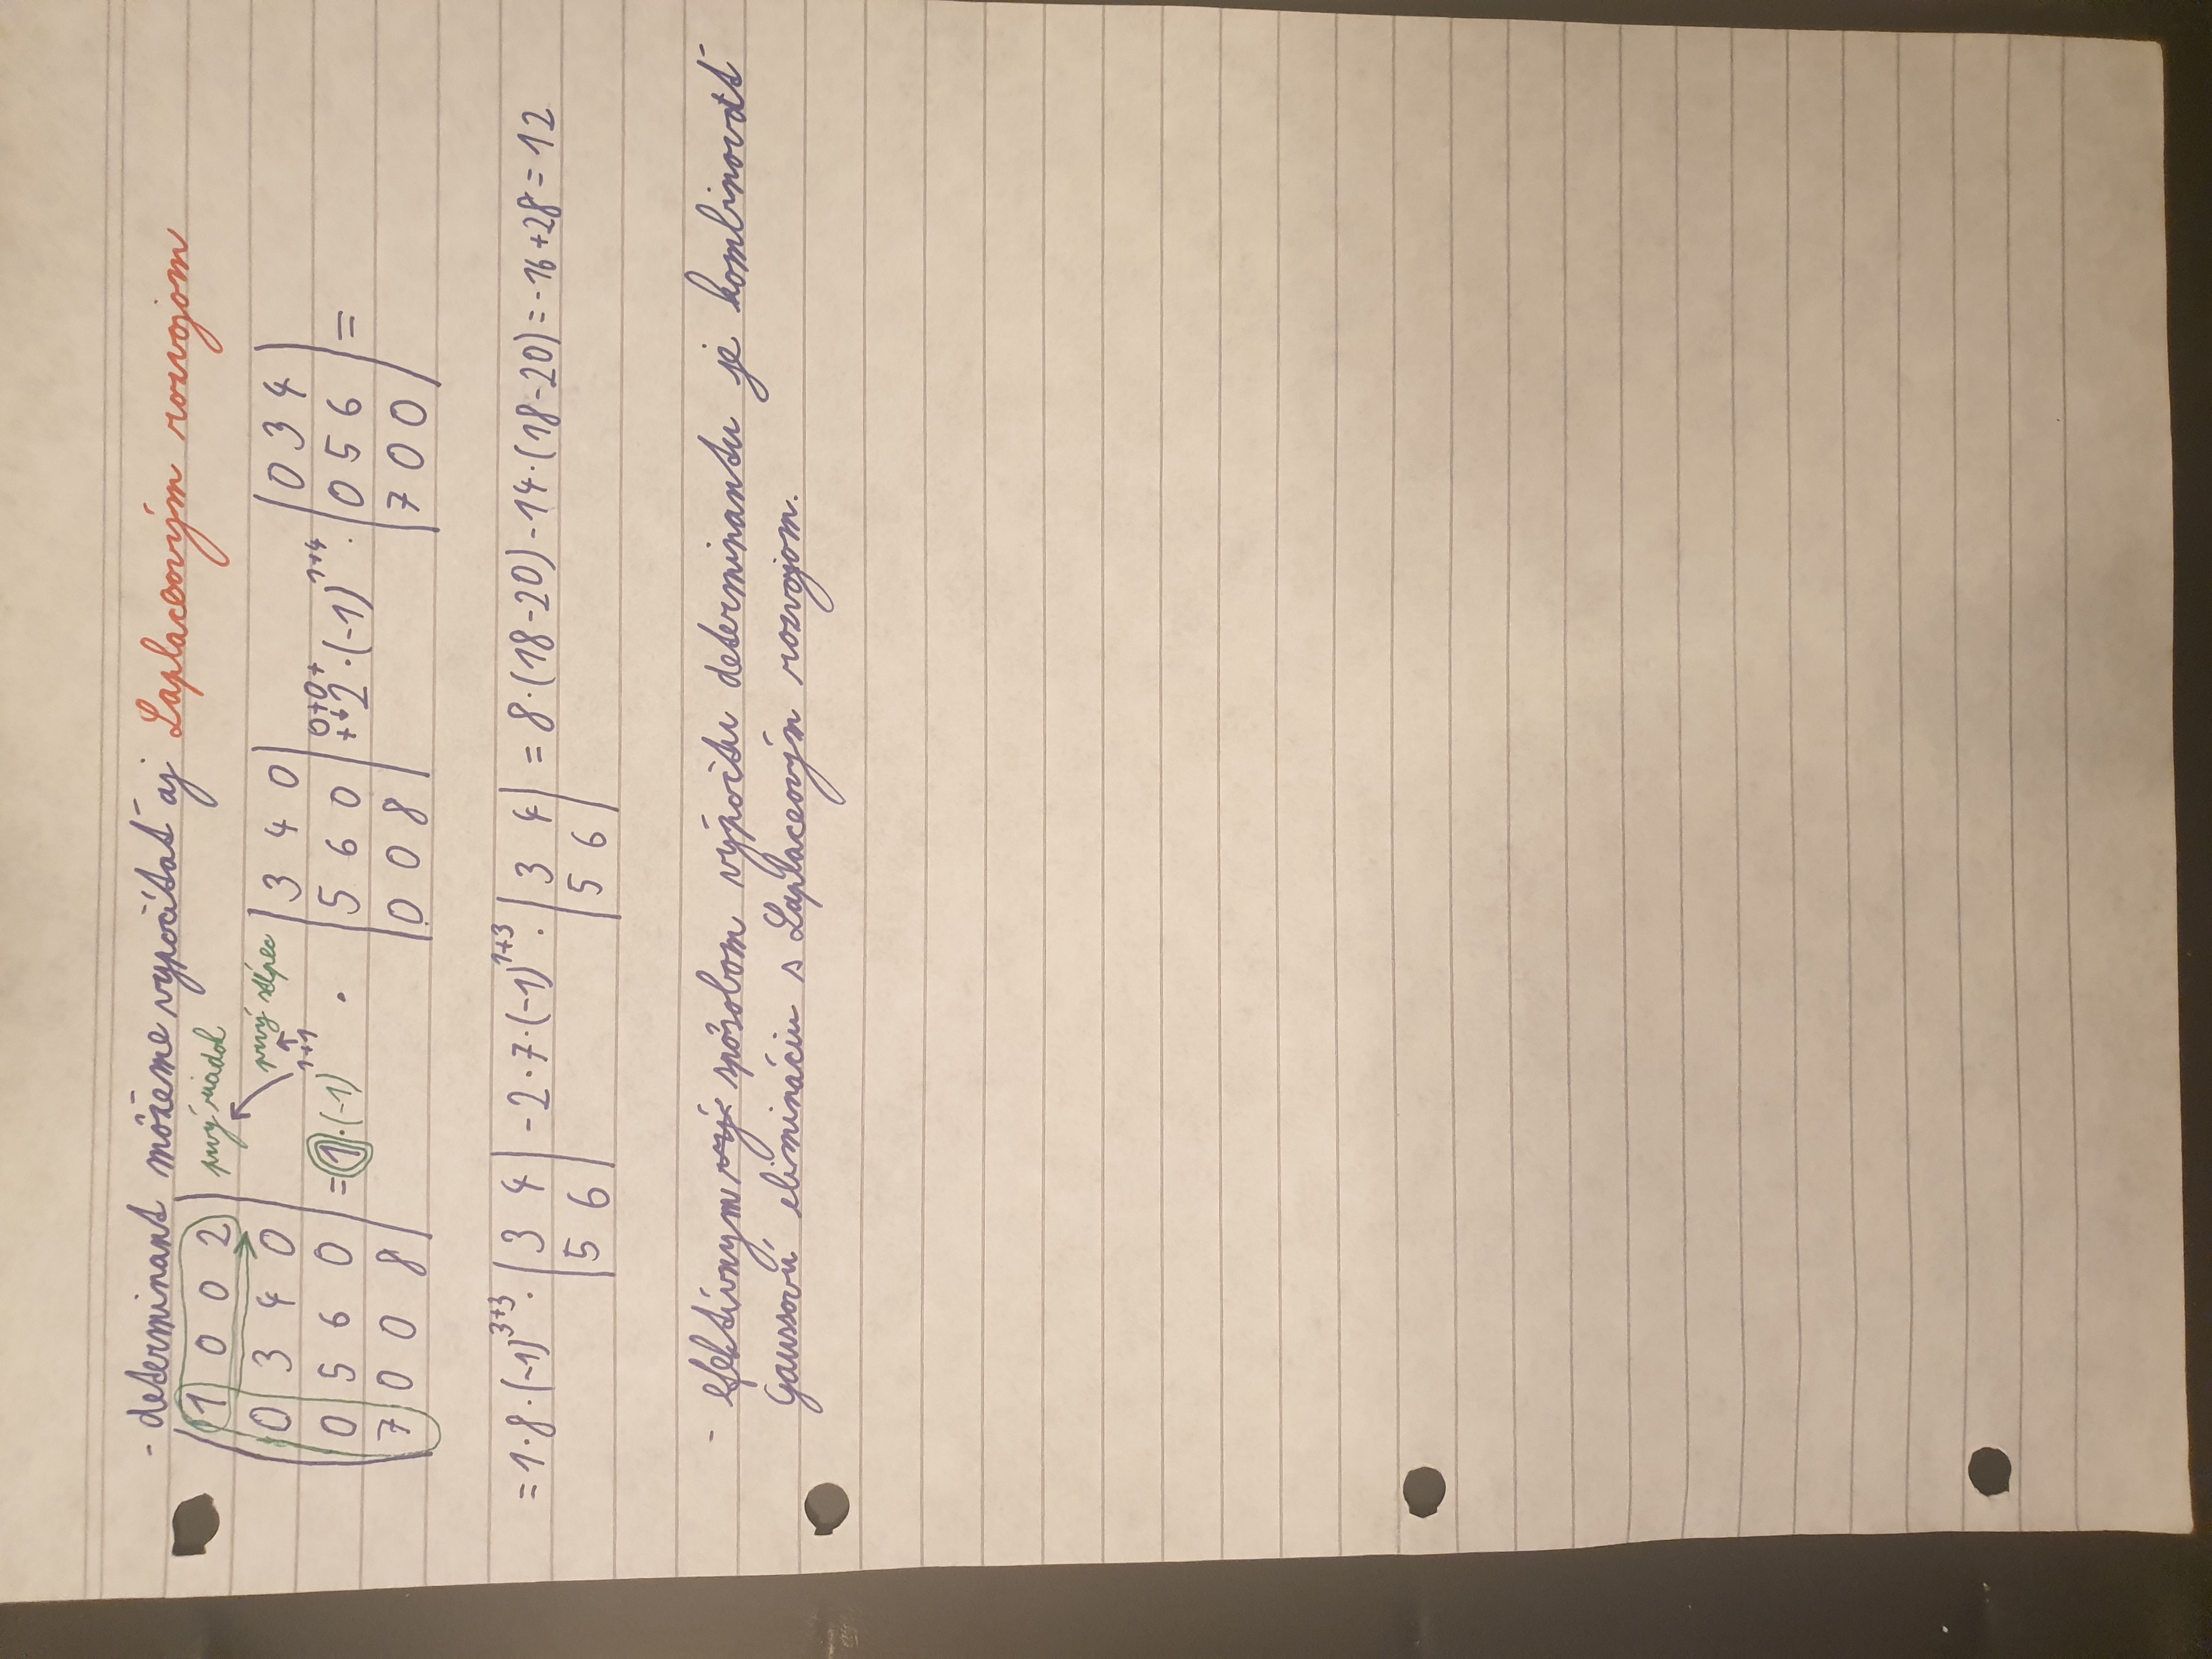 - determinant môžeme vypočítať aj Laplaceovým rozvojom
|1 0 0 2| prvý riadok
prvý stĺpec
|0 3 4 0|
|0 5 6 0| = 1·(-1)^{1+1} · |3 4 0; 5 6 0; 0 0 8| + 0 + 0 + 2·(-1)^{1+4} · |0 3 4; 0 5 6; 7 0 0| =
|7 0 0 8|
= 1·8·(-1)^{3+3} · |3 4; 5 6| - 2·7·(-1)^{1+3} · |3 4; 5 6| = 8·(18-20) - 14·(18-20) = -16 + 28 = 12
- efektívnym spôsobom výpočtu determinantu je kombinovať
Gaussovú elimináciu s Laplaceovým rozvojom.